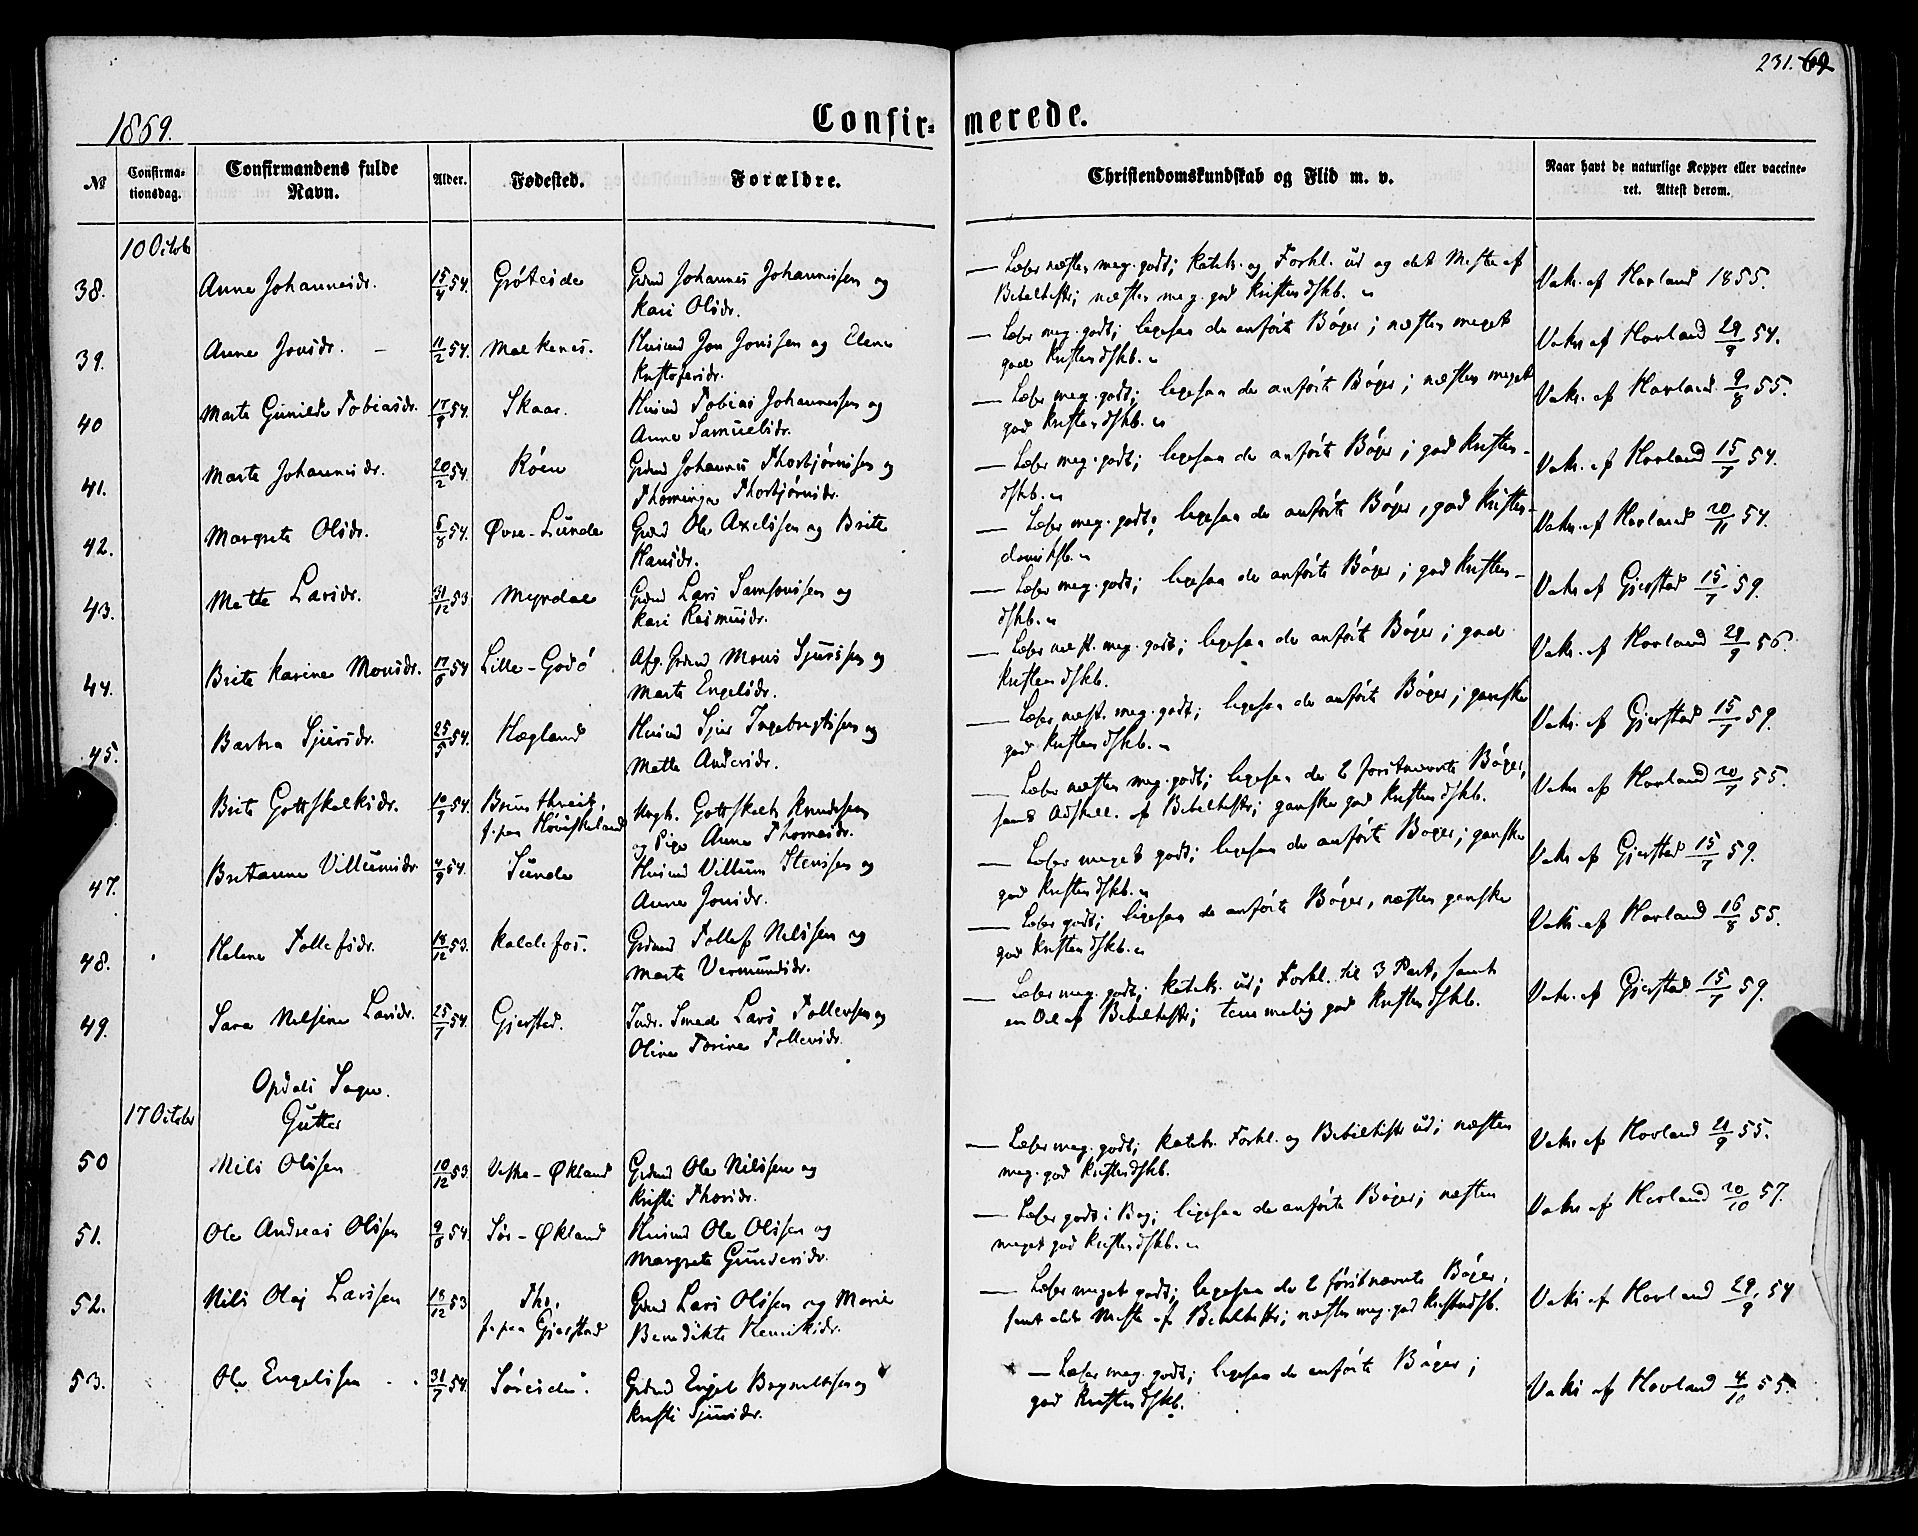 231. 69
1869.
Confir= merede.
№
Confirma=
tionsdag.
Confirmandens fulde
Navn.
Alder.
Fødested.
Forældre.
Christendomskundskab og Flid m. v.
Naar havt de naturlige Kopper eller vaccine=
ret. Attest derom.
10 Octob
38. Anne Johannesdr. 15/4 54. Gróteide Grdmd Johannes Johannessen og
Kari Olsdr.
— Læser næsten meg. godt; Katek. og Forkl. ud og det Meste af
Bibelhistr; næsten meg. god Kristendskb.
Vaks. af Hovland 1855.
39. Anne Jonsdr. 11/2 54. Malkenes. Husmd Jon Jonssen og Elene
Kristofersdr.
— Læser meg. godt; ligesaa de anførte Bóger; næsten meget
god Kristendskb.
Vaks af Hovland 29/9 54.
40 Marte Gunilde Tobiasdr. 17/9 54. Skaar. Husmd Tobias Johannessen og
Anne Samuelsdr.
— Læser meg. godt; ligesaa de anførte Bóger; næsten meget
god Kristendskb.
Vaks. af Hovland 9/8 55.
41. Marta Johannesdr. 20/2 54. Róen Grdmd Johannes Thorbjórnssen og
Thominga Thorbjórnsdr.
— Læser meg. godt; ligesaa de anførte Bóger; god Kristen-
dskb.
Vaks. af Hovland 15/7 54.
42. Margrete Olsdr. 6/8 54. Øvre-Lunde Grdmd Ole Axelssen og Brite
Hansdr.
— Læser meg. godt; ligesaa de anførte Bóger, god Kristen-
domskb.
Vaks. af Hovland 20/11 54.
43. Mette Larsdr. 31/12 53 Myrdal Grdmd Lars Samsonssen og
Kari Rasmusdr.
— Læser meg. godt; ligesaa de anførte Bóger; god Kristen-
dskb.
Vaks af Gjerstad 15/7 59.
44. Brite Karine Monsdr. 17/6 54 Lille-Godó Afg. Grdmd Mons Sjurssen og
Marte Engelsdr.
— Læser næst. meg. godt; ligesaa de anførte Bóger; god
Kristendskb.
Vaks. af Hovland 29/9 56.
45. Barbra Sjursdr. 25/5 54. Hægland Husmd Sjur Ingebrigtssen og
Mette Andersdr.
— Læser næst. meg. godt; ligesaa de anførte Bóger; ganske
god Kristendskb.
Vaks. af Gjerstad 15/7 59.
Brite Gottskalksdr. 10/9 54. Ungk. Gottskalk Knudssen
og Pige Anne Thomasdr.
— Læser næsten meg. godt; ligesaa de 2 førstnævnte Bóger,
samt Adskill. af Bibelhistr; ganske god Kristendskb.
Vaks af Hovland 20/7 55.
47. Britanne Villumsdr. 4/9 54. Sunde Husmd Villum Stenssen og
Anne Jonsdr.
— Læser meget godt; ligesaa de anførte Bóger; ganske
god Kristendskb.
Vaks af Gjerstad 15/7 59.
48. Helene Tollefsdr. 18/12 53. Kaldefos. Grdmd Tollef Nilssen og
Marte Vermundsdr.
— Læser godt; ligesaa de anførte Bóger, næsten ganske
god Kristendskb.
Vaks af Hovland 16/8 55.
49. Sara Nilsine Larsdr. 25/7 54. Gjerstad. Indr. Smed Lars Tollevsen og
Oline Torine Tollevsdr.
— Læser meg. godt; Katek. ud; Forkl. til 3 Part, samt
en Del af Bibelhistr; temmelig god Kristendskb.
Vaks. af Gjerstad 15/7 59.
Opdals Sogn.
17 October Gutter
50 Nils Olssen 10/12 53. Vestre-Økland Grdmd Ole Nilssen og
Kristi Thorsdr.
— Læser meg. godt; Katek. Forkl. og Bibelhistr ud; næsten
meg. god Kristendskb.
Vaks af Hovland 21/9 55.
51. Ole Andreas Olssen 9/8 54. Sór-Økland Husmd Ole Olssen og
Margrete Gundersdr.
— Læser godt i Bog; ligesaa de anførte Bóger; næsten
meget god Kristendskb.
Vaks af Hovland 20/10 57.
52. Nils Olaj Larssen 18/12 53 Tho,
f. paa Gjerstad
Grdmd Lars Olssen og Marie
Benedikte Henriksdr.
— Læser meget godt; ligesaa de 2 førstnævnte Bóger,
samt det Meste af Bibelhistr; næsten meg. god Kristendskb.
Vaks af Hovland 29/9 54
53. Ole Engelssen 31/7 54. Sóreide. Grdmd Engel og
Kristi Sjursdr.
— Læser meg. godt; ligesaa de anførte Bóger;
god Kristendskb.
Vaks af Hovland 4/10 55.